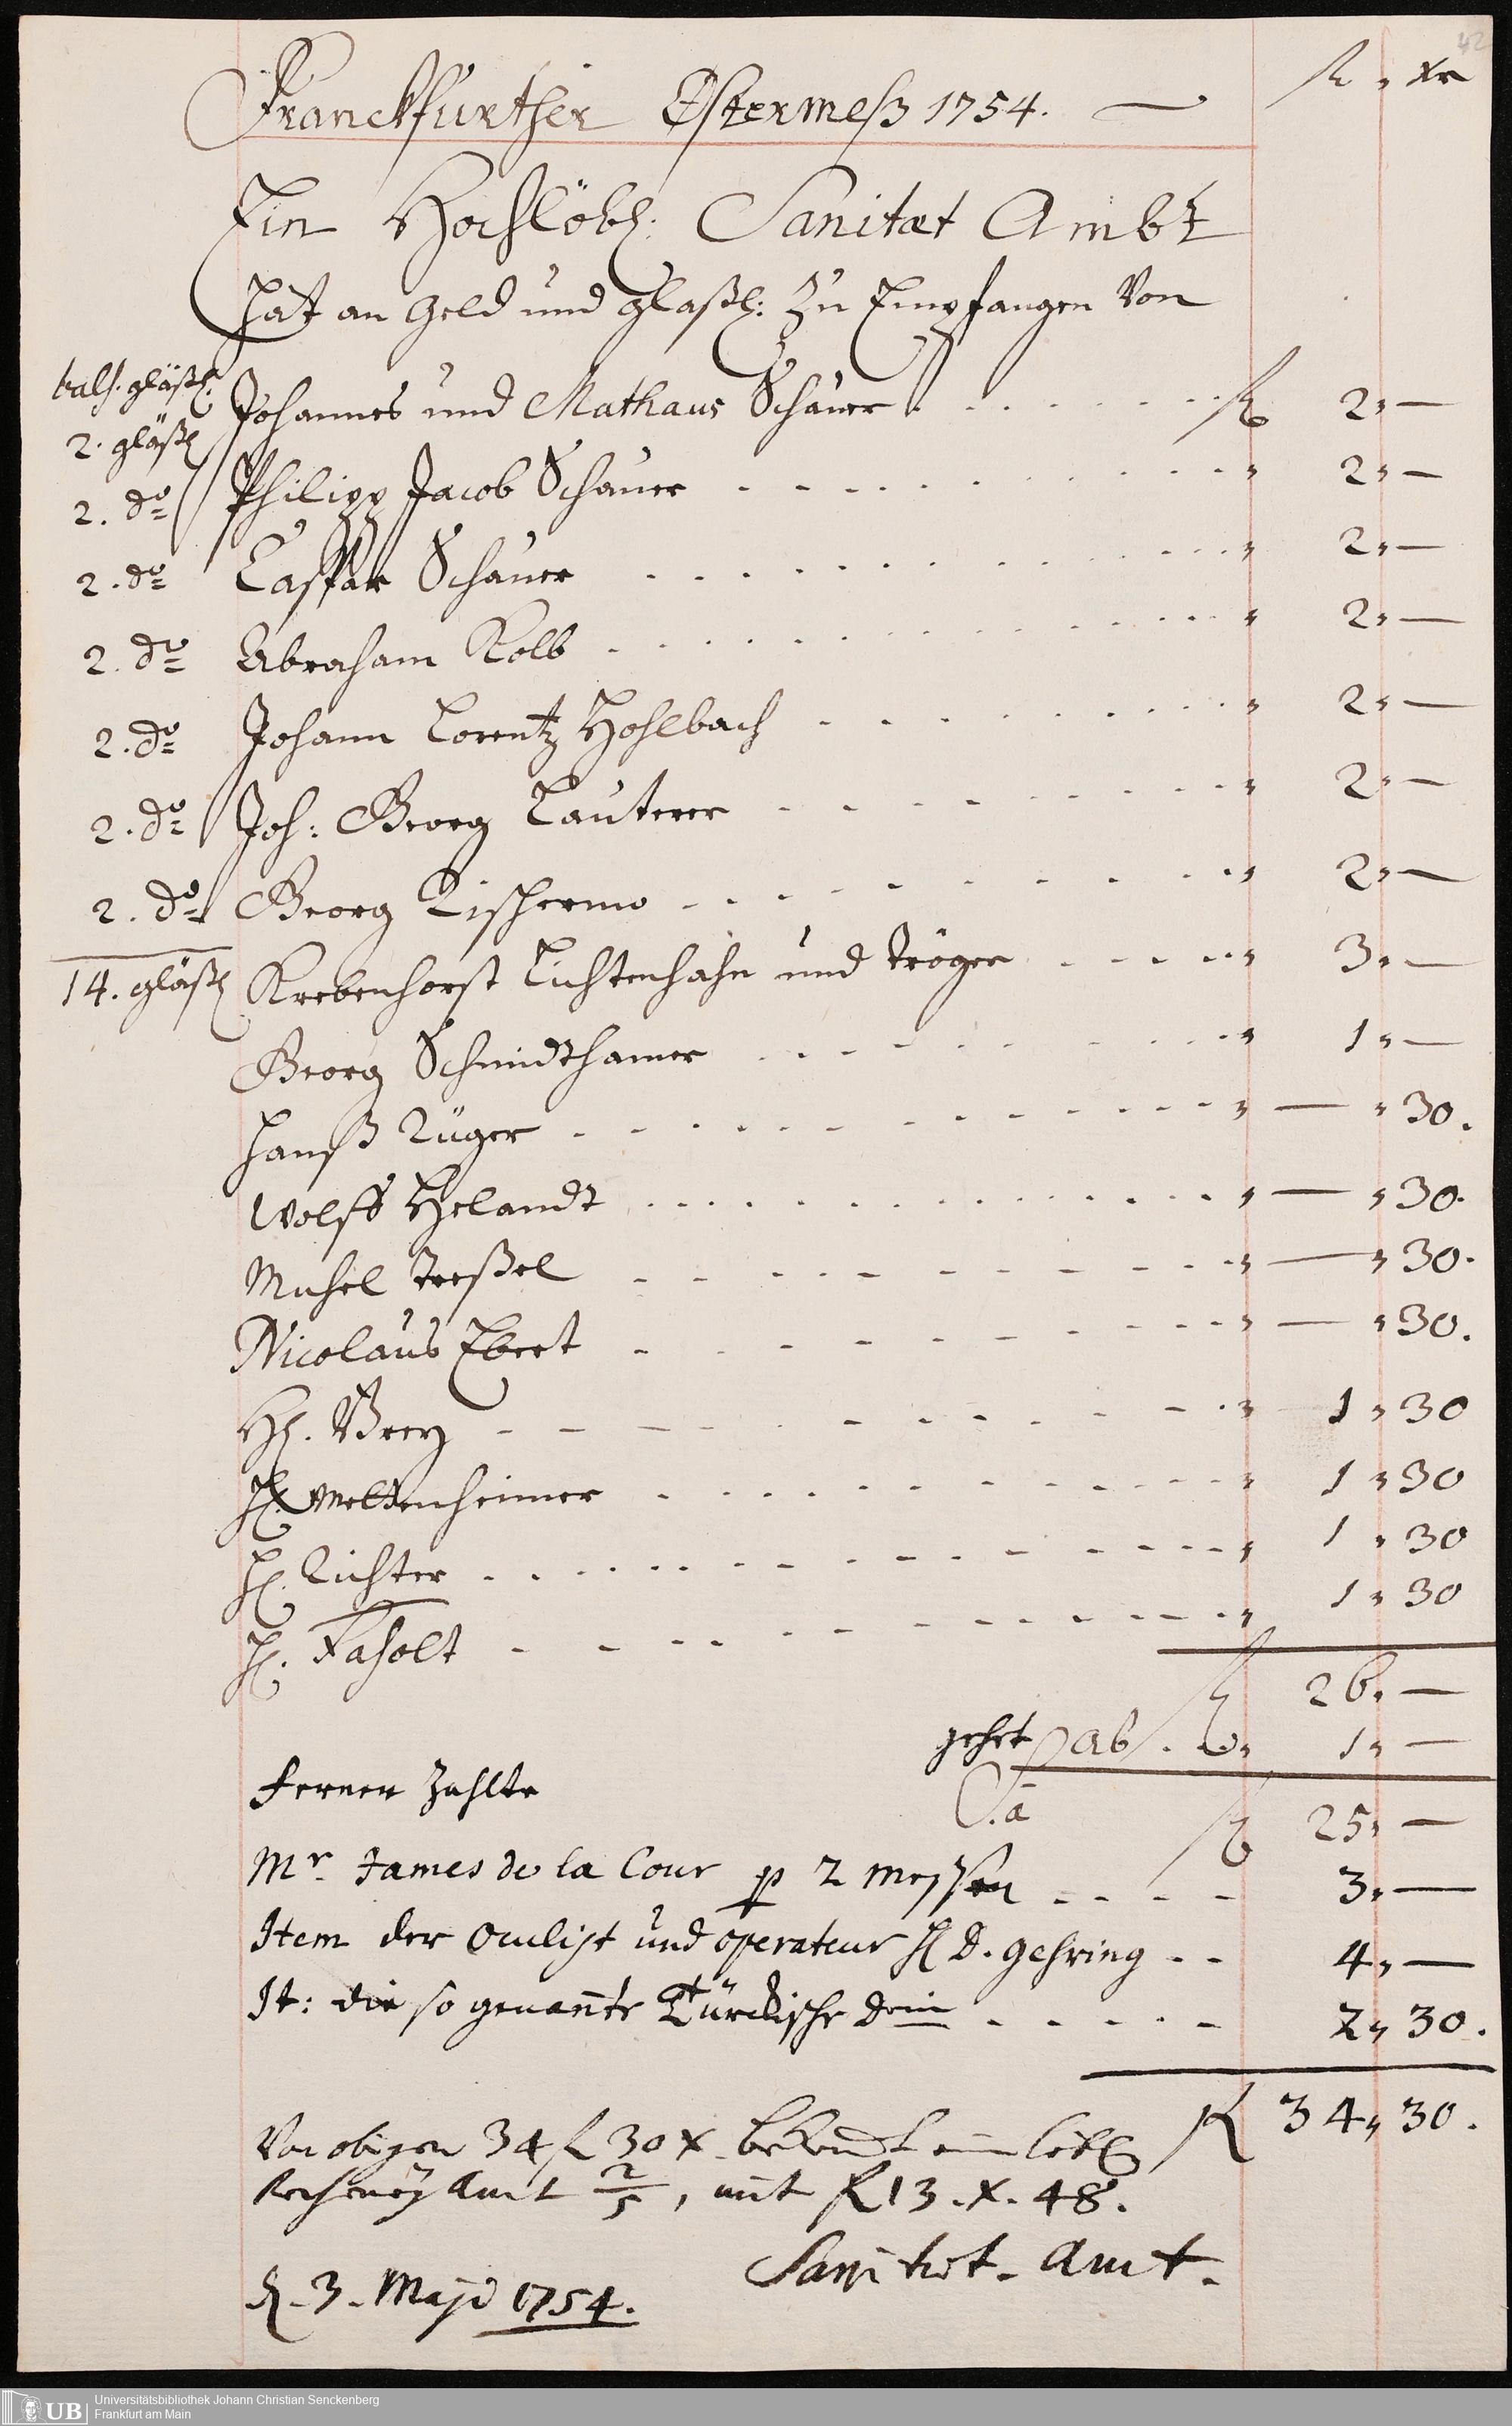 42
fl " Xr
Franckfurther Ostermeß 1754.
Ein Hochlöbl: Sanitæt Ambt
hat an Geld und glaßl: Zu Empfangen Von
bals. gläßl.
2. gläßl Johannes und Mathaus Schauer . fl 2 " —
2. do Philipp Jacob Schauer " 2 " —
2. do Caspar Schauer " 2 " —
2. do Abraham Kolb " 2 " —
2. do Johann Lorentz Hohlbach " 2 " —
2. do Joh: Georg Lauterer " 2 " —
2. do Georg " 2 " —
14. gläßl Krebenhorst Lichtenhahn und Tröger " 3 " —
Georg Schmidthamer " 1 " —
Hanß Rüger " — " 30.
Wolff Helandt " — " 30.
Michel Treßel " — " 30.
Nicolaus Ebert " — " 30.
H. Brey " 1 " 30
H. Mettenheimer " 1 " 30
H. Richter " 1 " 30
H. Fasolt " 1 " 30
fl 26 " —
gehet ab . . " 1 " —
Ferner Zahlte
S.a fl 25 " —
Mr. James de la Cour p 2 Messen 3 " —
Item der Oculist und operateur H D. Gehring 4 " —
It: die so genante Türckische 2 " 30.
fl 34 " 30.
Von obigen 34 fl 30 x. bekomt ein löbl
Recheney Amt 2/5, mit fl 13. x. 48.
Sanitæt. Amt.
d. 3. Maji 1754.
UB Universitätsbibliothek Johann Christian Senckenberg
Frankfurt am Main